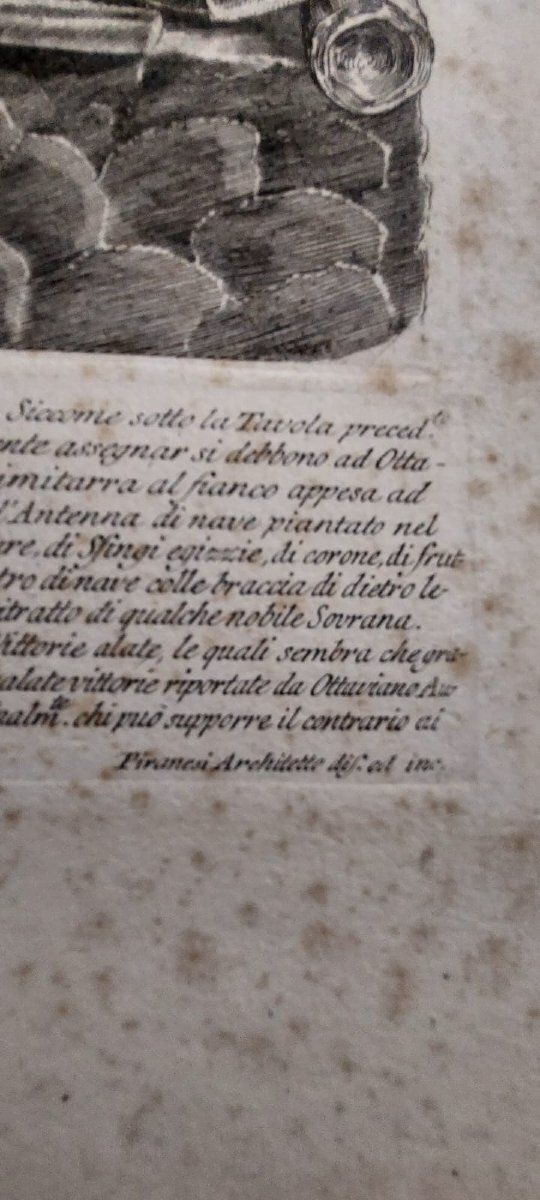 Siccome sotto la Tavola preced.te
ente assegnar si debbono ad Otta-
imitarra al fianco appesa ad
l'Antenna di nave piantato nel
are, di Sfingi egizzie, di corone, di frut
tro di nave colle braccia di dietro le-
itratto di qualche nobile Sovrana.
Vittorie alate, le quali sembra che gra-
alate vittorie riportate da Ottaviano Au
nalm.te chi può supporre il contrario ai
Piranesi Architetto dis. ed inc.